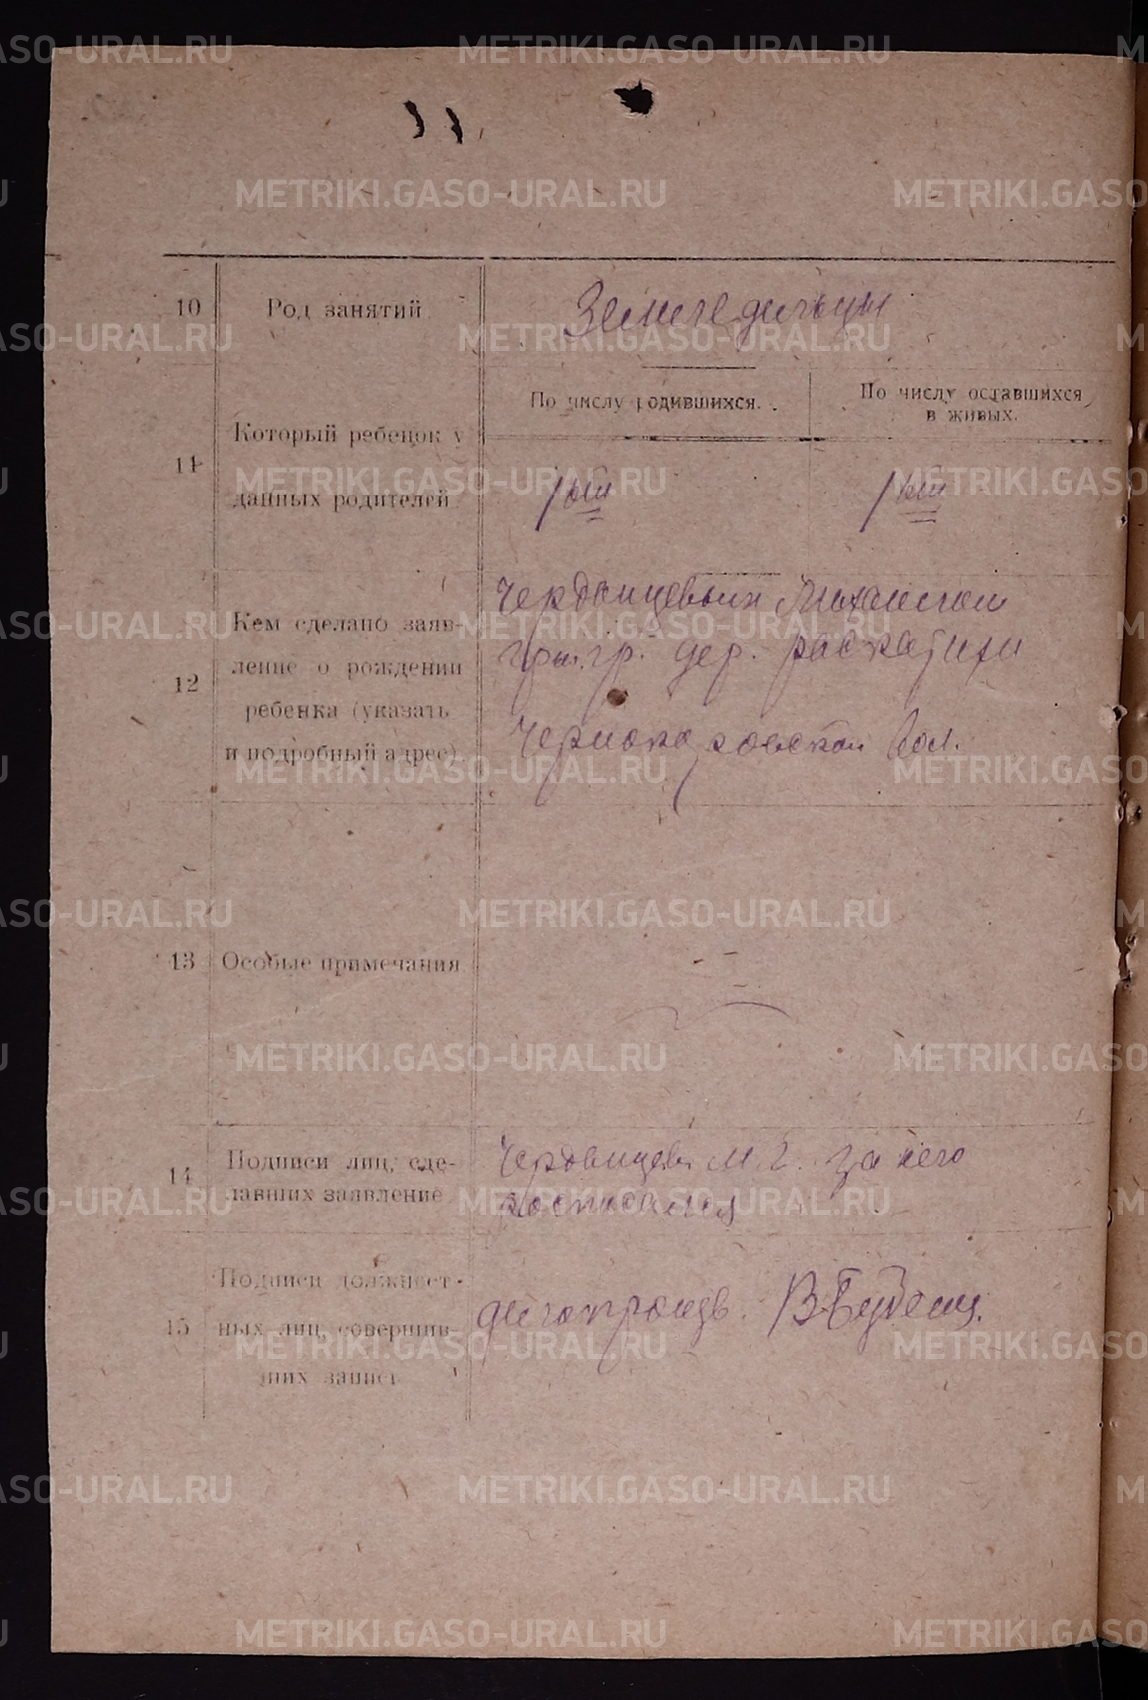 10 Род занятий Земледельцы
По числу родившихся. По числу оставшихся
в живых.
11 Который ребенок у
данных родителей 1ый 1ый
12 Кем сделано заяв-
ление о рождении
ребенка (указать
и подробный адрес)
Чердынцевым Михаилом
гр. дер. Раскатихи
Черноко ровской вол.
13 Особые примечания
14 Подписи лиц, сде-
лавших заявление
Чердынцев М. за него
росписался
15 Подписи должност-
ных лиц, совершив-
ших запись
делопроизв.
METRIKI.GASO-URAL.RU